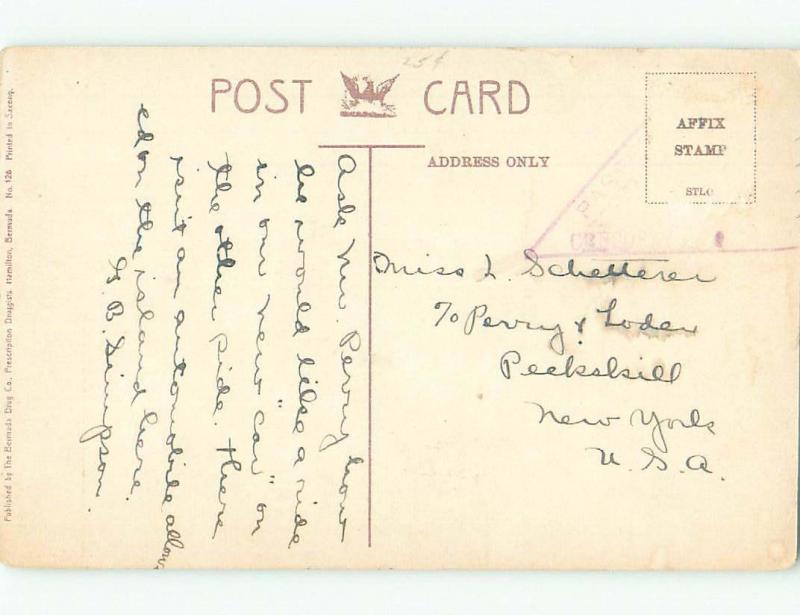 25¢
POST CARD
ADDRESS ONLY
AFFIX
STAMP
STLO
PASS
CENSOR
Ask Mr. Perry how
he would like a ride
in our new "car" on
the other side. There
isn't an automobile allow
ed on the island here.
G. B. Simpson.
Miss L. Schetterer
℅ Perry & Loder
Peekskill
New York
U. S. A.
Published by The Bermuda Drug Co., Prescription Druggists, Hamilton, Bermuda. No. 126 Printed in Saxony.